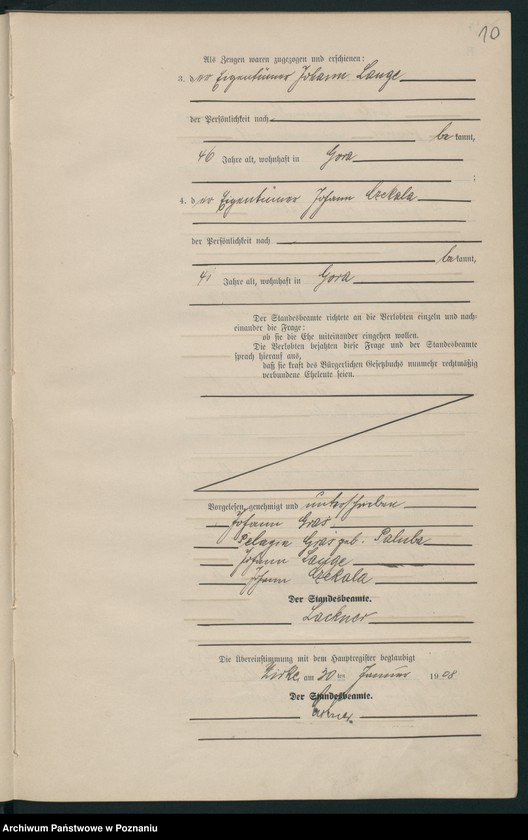 10
Als Zeugen waren zugezogen und erschienen:
3. der Eigentümer Johann Lange
der Persönlichkeit nach
bekannt,
46 Jahre alt, wohnhaft in Gora
;
4. der Eigentümer Johann Czekala
der Persönlichkeit nach
bekannt,
41 Jahre alt, wohnhaft in Gora
Der Standesbeamte richtete an die Verlobten einzeln und nach-
einander die Frage:
ob sie die Ehe miteinander eingehen wollen.
Die Verlobten bejahten diese Frage und der Standesbeamte
sprach hierauf aus,
daß sie kraft des Bürgerlichen Gesetzbuchs nunmehr rechtmäßig
verbundene Eheleute seien.
Vorgelesen, genehmigt und unterschrieben
Johann Gras
Pelagia Gras geb. Paluba
Johann Lange
Johann Czekala
Der Standesbeamte.
Lackner
Die Übereinstimmung mit dem Hauptregister beglaubigt
Zirke, am 30 ten Januar 1908
Der Standesbeamte.
Lackner
Archiwum Państwowe w Poznaniu